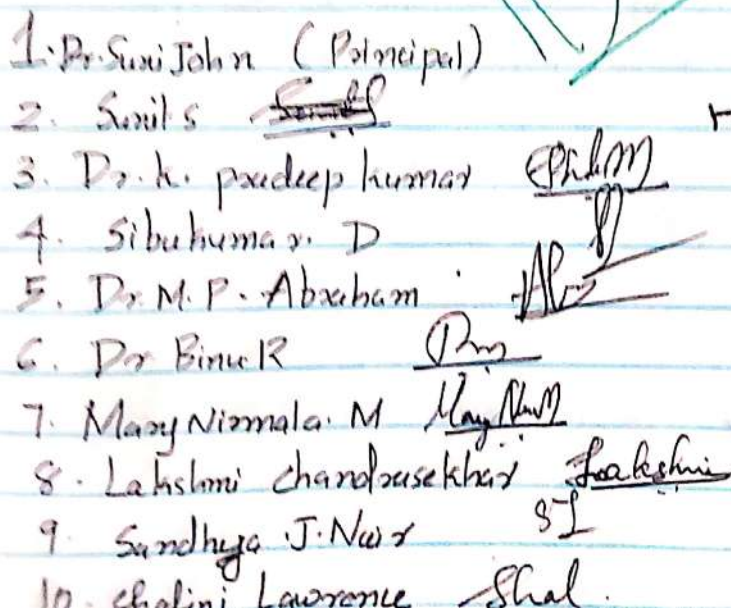 1. Dr. Suni John (Principal)
2. Sunil S
3. Dr. K. Pradeep kumar
4. Sibukumar. D
5. Dr. M. P. Abraham
6. Dr Binu R
7. Mary Nirmala. M
8. Lakshmi chandrasekhar Laakshmi
9. Sandhya J. Nair
10. Shalini Lawrence Shal.